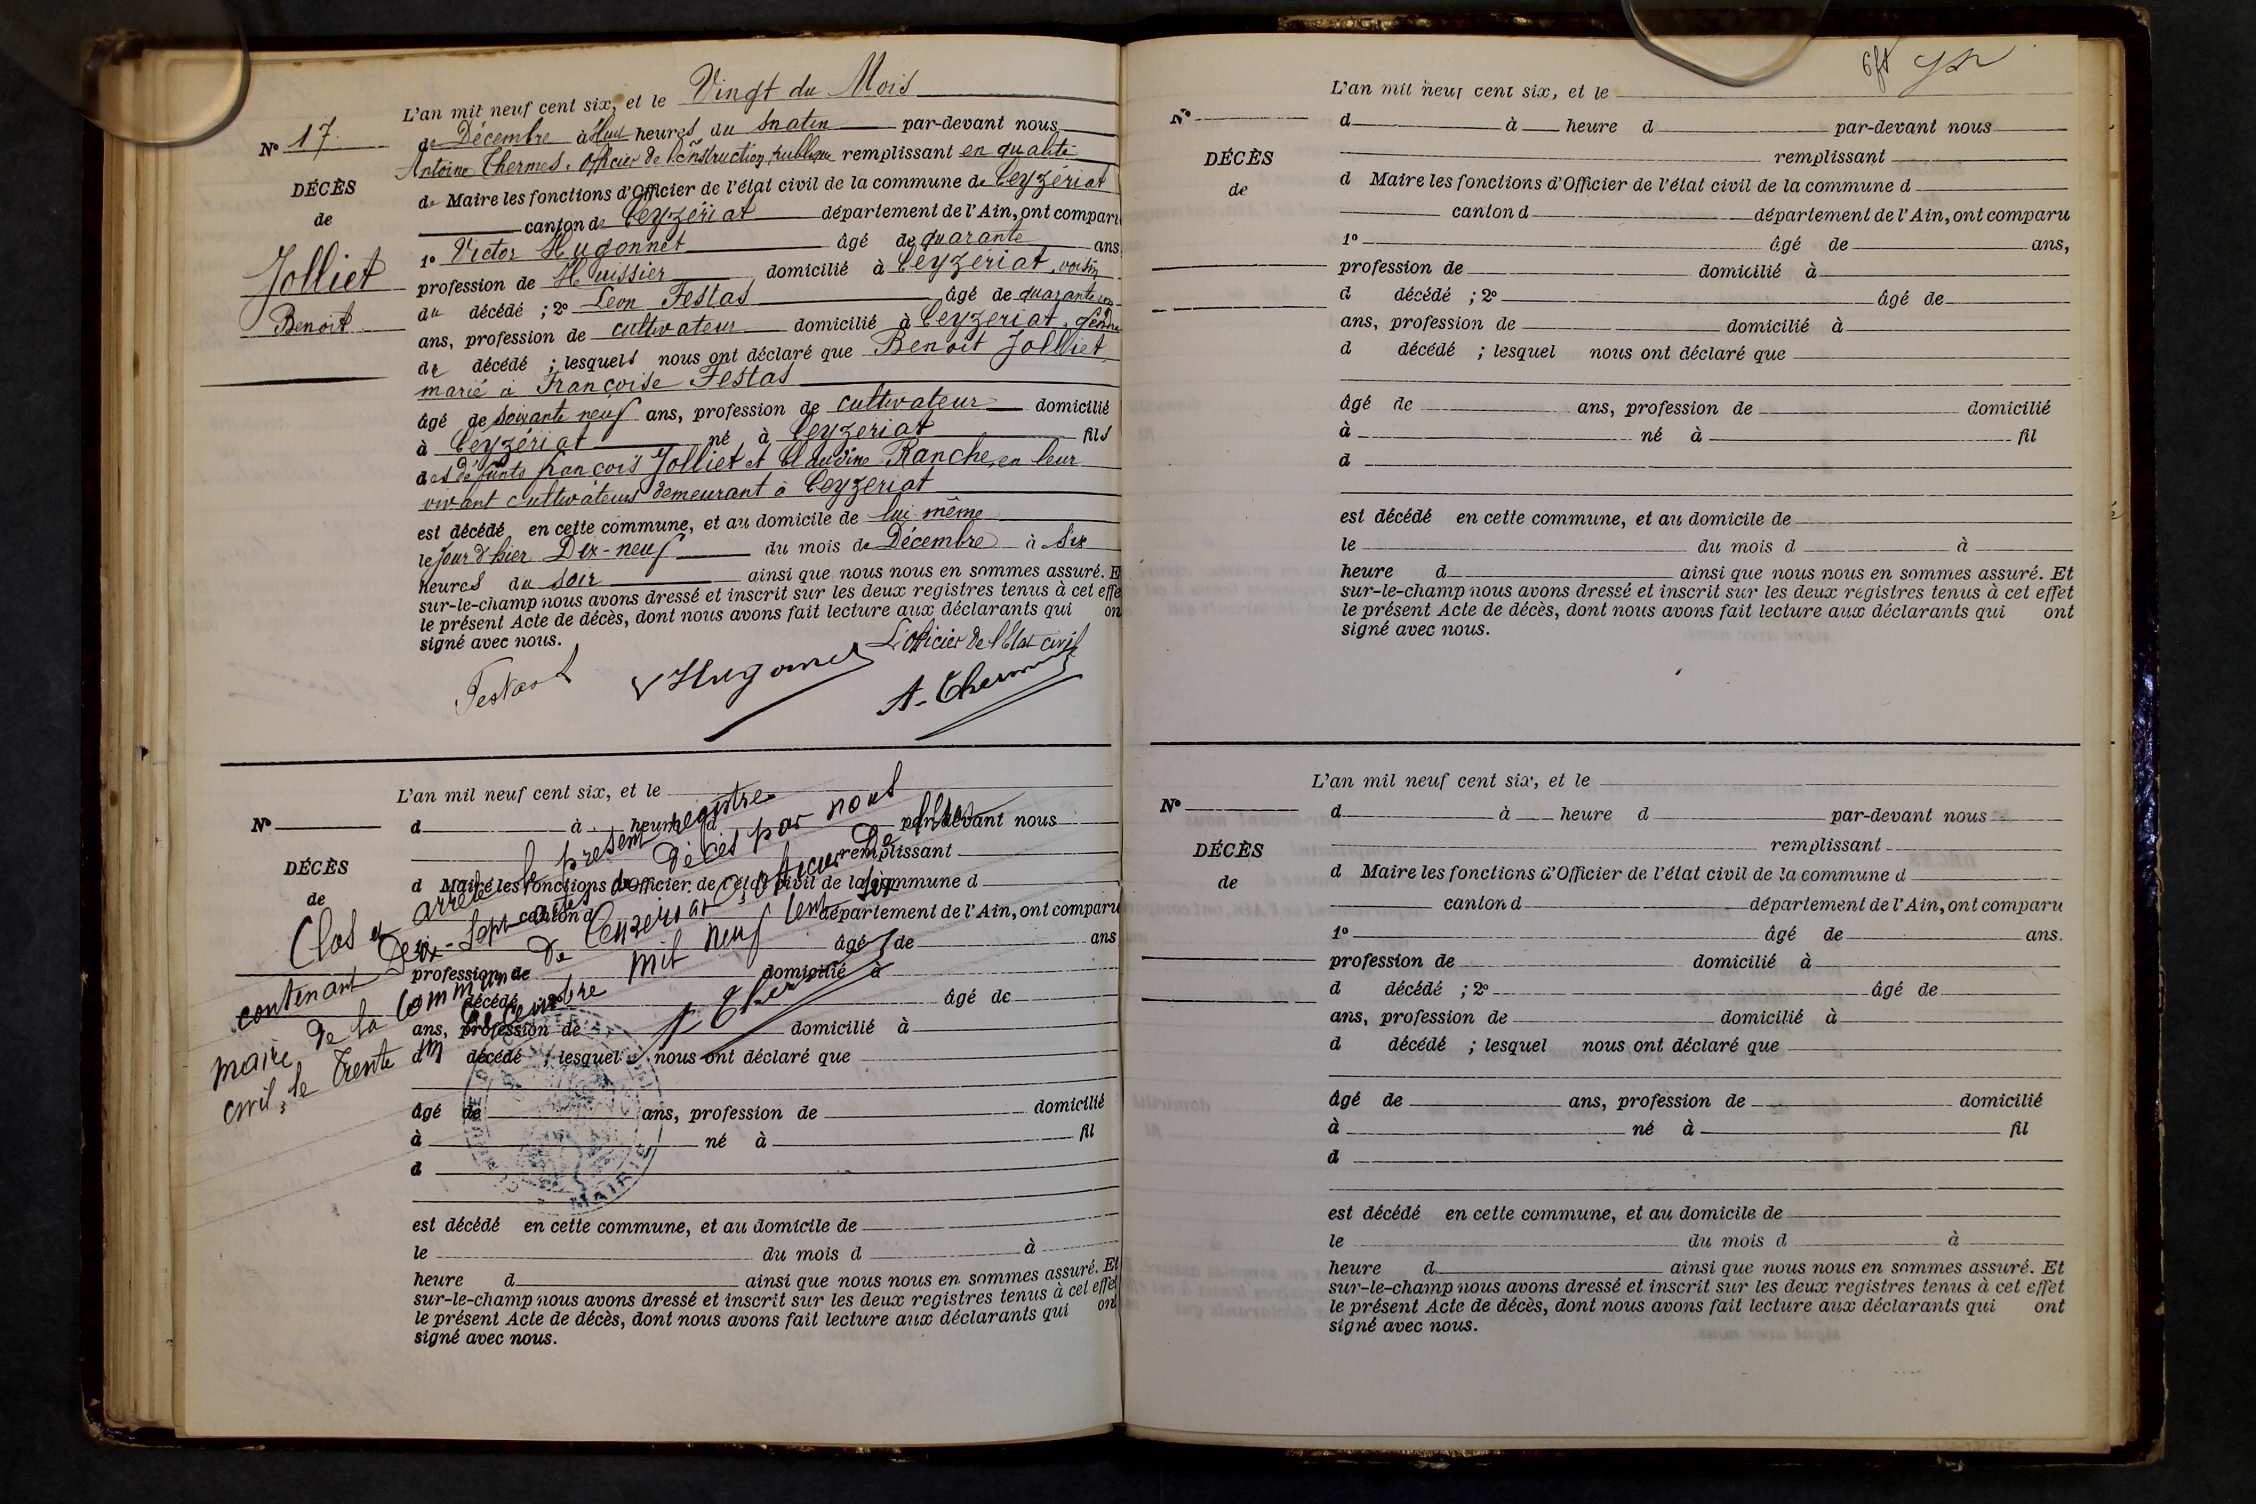 L'an mil neuf cent six, et le Vingt du Mois
N° 17 de Décembre à Huit heures du matin par-devant nous
Antoine Thermes, Officier de l'Instruction publique remplissant en qualité
DÉCÈS
de Maire les fonctions d'Officier de l'état civil de la commune de Ceyzériat
de
canton de Ceyzériat département de l'Ain, ont comparu
1° Victor Hugonnet âgé de quarante ans
Jolliet
profession de Huissier domicilié à Ceyzériat, voisin
Benoit
du décédé ; 2° Léon Festas âgé de quarante
ans, profession de cultivateur domicilié à Ceyzeriat, gendre
du décédé ; lesquels nous ont déclaré que Benoit Jolliet
marié à Françoise Festas
âgé de soixante neuf ans, profession de cultivateur domicilié
à Ceyzériat né à Ceyzeriat fils
des défunts françois Jolliet et Claudine Ranche, en leur
vivant cultivateurs demeurant à Ceyzeriat
est décédé en cette commune, et au domicile de lui même
le Jour d'hier Dix-neuf du mois de Décembre à Six
heures du soir ainsi que nous nous en sommes assuré. E
sur-le-champ nous avons dressé et inscrit sur les deux registres tenus à cet effe
le présent Acte de décès, dont nous avons fait lecture aux déclarants qui on
signé avec nous.
L'Officier de l'Etat civil
Festas V Hugonnet A. Thermes
L'an mil neuf cent six, et le
N° d à heure d par-devant nous
remplissant
DÉCÈS
d Maire les fonctions d'Officier de l'état civil de la commune d
de
canton d département de l'Ain, ont comparu
âgé de ans
profession de domicilié à
décédé âgé de
ans, profession de domicilié à
d décédé ; lesquel nous ont déclaré que
âgé de ans, profession de domicilié
à né à fil
d
est décédé en cette commune, et au domicile de
le du mois d à
heure d ainsi que nous nous en sommes assuré. Et
sur-le-champ nous avons dressé et inscrit sur les deux registres tenus à cet effet
le présent Acte de décès, dont nous avons fait lecture aux déclarants qui ont
signé avec nous.
Clos et arrêté le présent registre
contenant Dix-sept actes de Décès par nous
maire de la Commune de Ceyzeriat, officier de l'état
civil, le Trente un Décembre mil neuf cent six
A Thermes
MAIRIE
L'an mil neuf cent six, et le
N° d à heure d par-devant nous
remplissant
DÉCÈS
d Maire les fonctions d'Officier de l'état civil de la commune d
de
canton d département de l'Ain, ont comparu
1° âgé de ans,
profession de domicilié à
d décédé ; 2° âgé de
ans, profession de domicilié à
d décédé ; lesquel nous ont déclaré que
âgé de ans, profession de domicilié
à né à fil
d
est décédé en cette commune, et au domicile de
le du mois d à
heure d ainsi que nous nous en sommes assuré. Et
sur-le-champ nous avons dressé et inscrit sur les deux registres tenus à cet effet
le présent Acte de décès, dont nous avons fait lecture aux déclarants qui ont
signé avec nous.
L'an mil neuf cent six, et le
N° d à heure d par-devant nous
remplissant
DÉCÈS
d Maire les fonctions d'Officier de l'état civil de la commune d
de
canton d département de l'Ain, ont comparu
1° âgé de ans.
profession de domicilié à
d décédé ; 2° âgé de
ans, profession de domicilié à
d décédé ; lesquel nous ont déclaré que
âgé de ans, profession de domicilié
à né à fil
d
est décédé en cette commune, et au domicile de
le du mois d à
heure d ainsi que nous nous en sommes assuré. Et
sur-le-champ nous avons dressé et inscrit sur les deux registres tenus à cet effet
le présent Acte de décès, dont nous avons fait lecture aux déclarants qui ont
signé avec nous.